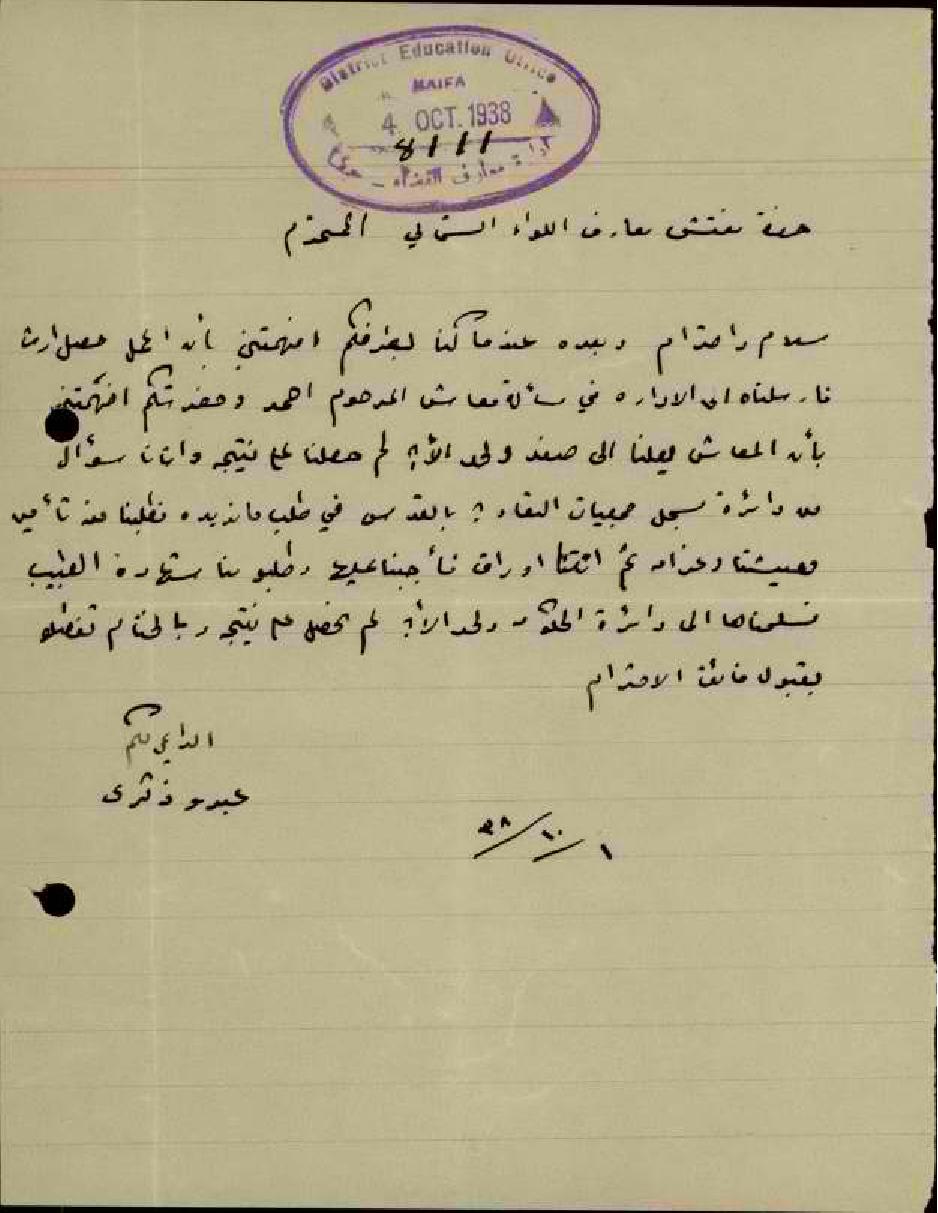 District Education Office
HAIFA
4 OCT. 1938
8111
ادارة معارف القضاء - حيفا
حضرة مفتش معارف اللواء الشمالي المحترم
سلام واحترام وبعده عندما كنا لطرفكم افهمتني بأن اعمل حصر ارث
فارسلناه الى الاداره في مسألة معاش المرحوم احمد وحضرتكم افهمتني
بأن المعاش يصلنا الى صفد ولحد الأن لم حصلنا على نتيجه واتانا سؤال
من دائرة مسجل جمعيات التعاون بالقدس في طلب ما نريده فطلبنا منه تأمين
معيشتنا وخلافه ثم اتتنا اوراق فأجبنا عليها وطلبو منا شهادة الطبيب
فسلمناها الى دائرة الحكومه ولحد الأن لم نحصل على نتيجه وبالختام تفضلو
بقبول فائق الاحترام
الداعي لكم
عبده ذكرى
١/١٠/٣٨